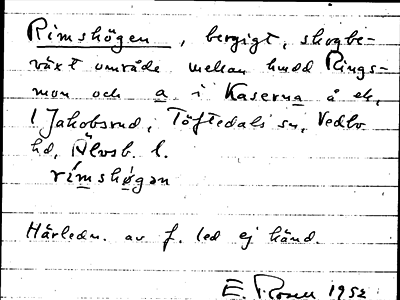 Rimshögen, bergigt, skogbe-
växt område mellan hmdd Rings-
mon och a i Kaserna å ek,
1 Jakobsrud, Töftedals sn, Vedbo
hd, Älvsb. l.
rimshøgan
Härledn. av f. led ej känd.
E. Rosell 1952